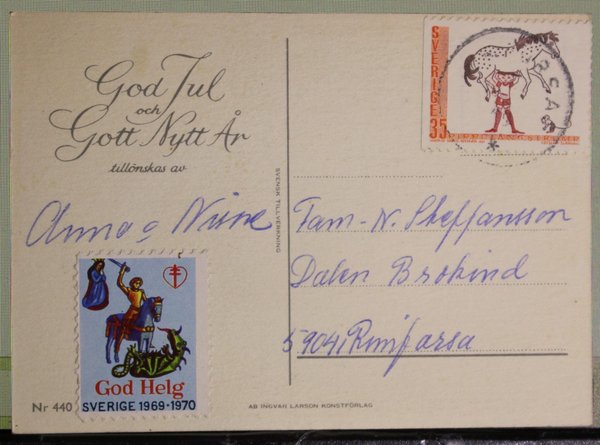 God Jul
och
Gott Nytt År
tillönskas av
Anna o
God Helg
SVERIGE 1969-1970
Nr 440
SVENSK TILLVERKNING
AB INGVAR LARSON KONSTFÖRLAG
SVERIGE 35
Fam. N. Steffansson
Dalen Brokind
59041 Rimforsa